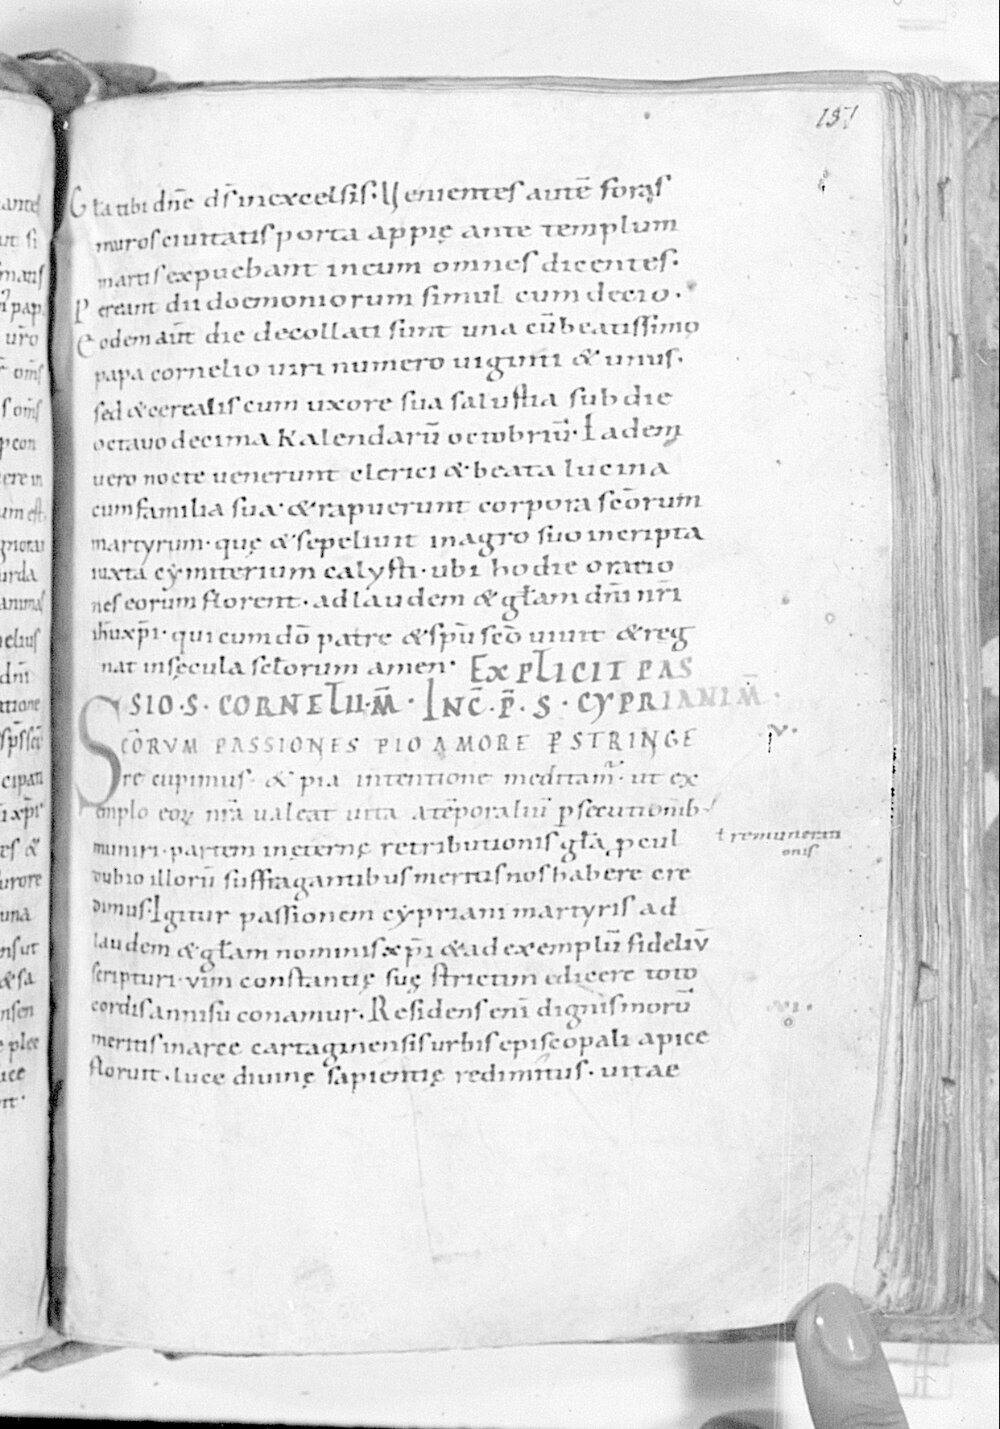 151
Gła tibi dn̄e ds̄ inexcelsis· Uenientes autē foras
muros ciuitatis porta appię ante templum
martis expuebant ineum omnes dicentes·
Pereant dii doemoniorum simul cum decio·
Eodem aūt die decollati sunt una cū beatissimo
papa cornelio uiri numero uiginti & unus·
sed & cerealis cum uxore sua salustia sub die
octauo decima Kalendarū octobriū· Eadem
uero nocte uenerunt clerici & beata lucina
cum familia sua· & rapuerunt corpora scōrum
martyrum· quę & sepeliuit inagro suo incripta
iuxta cymiterium calysti· ubi hodie oratio
nes eorum florent· adlaudem & głam dn̄i nr̄i
ihū xp̄i· qui cum dō patre & spū scō uiuit & reg
nat insęcula scłorum amen· EXPLICIT PAS
SSIO·S· CORNELII·M̄· INC̄·P̄·S· CYPRIANI M̄·
SCŌRVM PASSIONES PIO AMORE PSTRINGE
re cupimus· & pia intentione meditam̄· ut ex
emplo eoꝝ nr̄a ualeat uita atēporaliū ꝑsecutionib·
muniri· partem inęternę retributionis głą ꝓcul
dubio illorū suffragantibus meritis nos habere cre
dimus· Igitur passionem cypriani martyris ad
laudem & głam nominis xp̄i & ad exemplū fideliū
scripturi· uim constantię suę strictim edicere toto
cordis annisu conamur· Residens enī dignis morū
meritis inarce cartaginensis urbis episcopali apice
floruit· luce diuinę sapientię redimitus· uitae
ł remunerati
onis